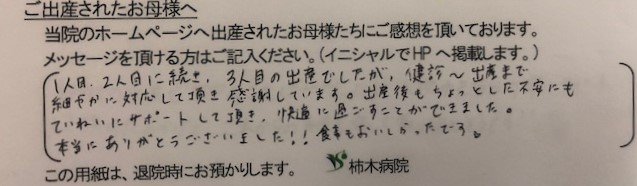 ご出産されたお母様へ
当院のホームページへ出産されたお母様たちにご感想を頂いております。
メッセージを頂ける方はご記入ください。(イニシャルでHPへ掲載します。)
1人目、2人目に続き、3人目の出産でしたが、健診〜出産まで
細やかに対応して頂き感謝しています。出産後もちょっとした不安にも
ていねいにサポートして頂き、快適に過ごすことができました。
本当にありがとうございました!!食事もおいしかったです。
この用紙は、退院時にお預かりします。 柿木病院